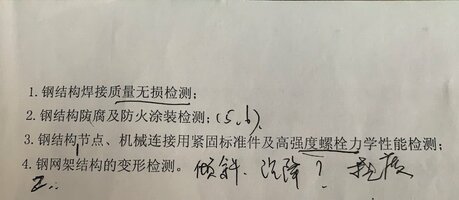 1.钢结构焊接质量无损检测；
2.钢结构防腐及防火涂装检测；(5、6)
3.钢结构节点、机械连接用紧固标准件及高强度螺栓力学性能检测；
4.钢网架结构的变形检测。倾斜、沉降？挠度